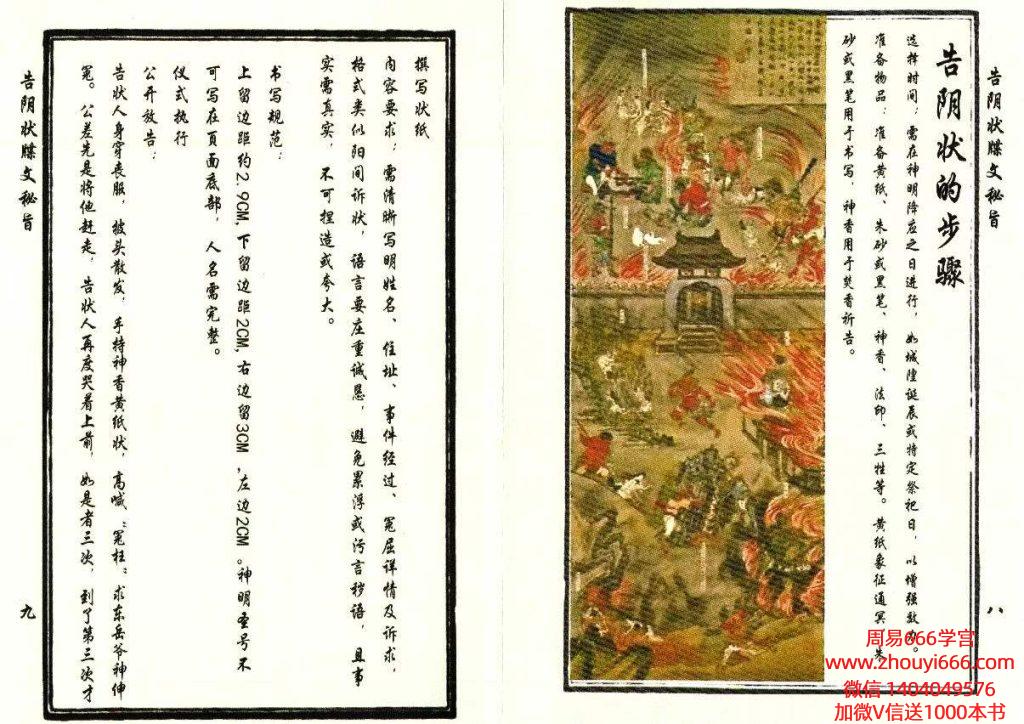 告阴状牒文秘旨
告阴状的步骤
选择时间：需在神明降应之日进行，如城隍诞辰或特定祭祀日，以增强效力。
准备物品：准备黄纸、朱砂或黑笔、神香、法印、三牲等。黄纸象征通冥，朱
砂或黑笔用于书写，神香用于焚香祈告。
八
周易666学宫
www.zhouyi666.com
微信 1404049576
加微V信送1000本书
撰写状纸
内容要求：需清晰写明姓名、住址、事件经过、冤屈详情及诉求，
格式类似阳间诉状，语言要庄重诚恳，避免累浮或污言秽语，且事
实需真实，不可捏造或夸大。
书写规范：
上留边距约2.9CM,下留边距2CM,右边留3CM,左边2CM。神明圣号不
可写在页面底部，人名需完整。
仪式执行
公开放告：
告状人身穿丧服，披头散发，手持神香黄纸状，高喊“冤枉”求东岳爷神伸
冤。公差先是将他赶走，告状人再度哭着上前，如是者三次，到了第三次才
告阴状牒文秘旨
九